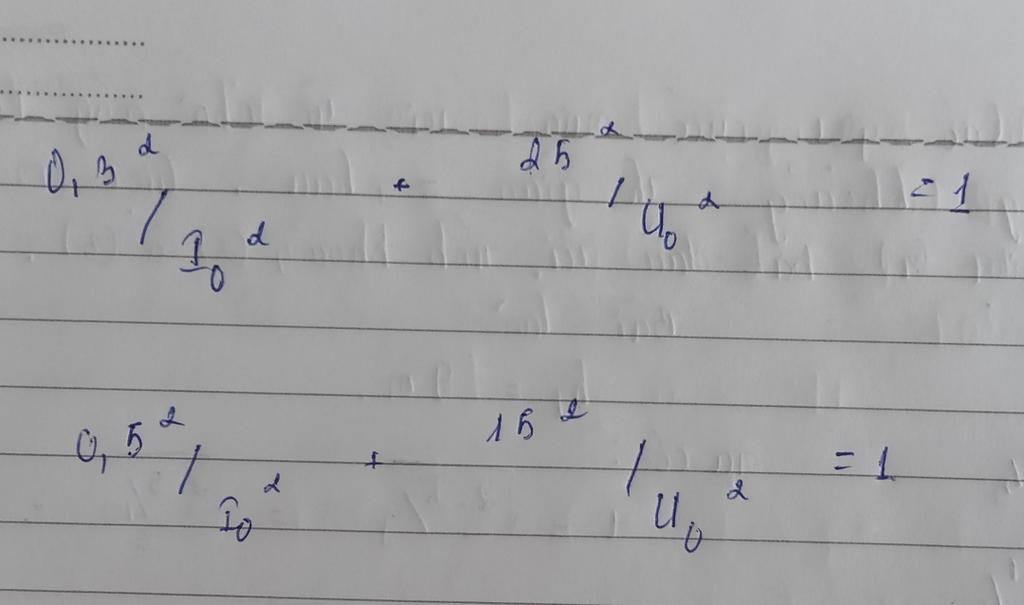 0,3² / I₀² + 25² / U₀² = 1
0,5² / I₀² + 15² / U₀² = 1